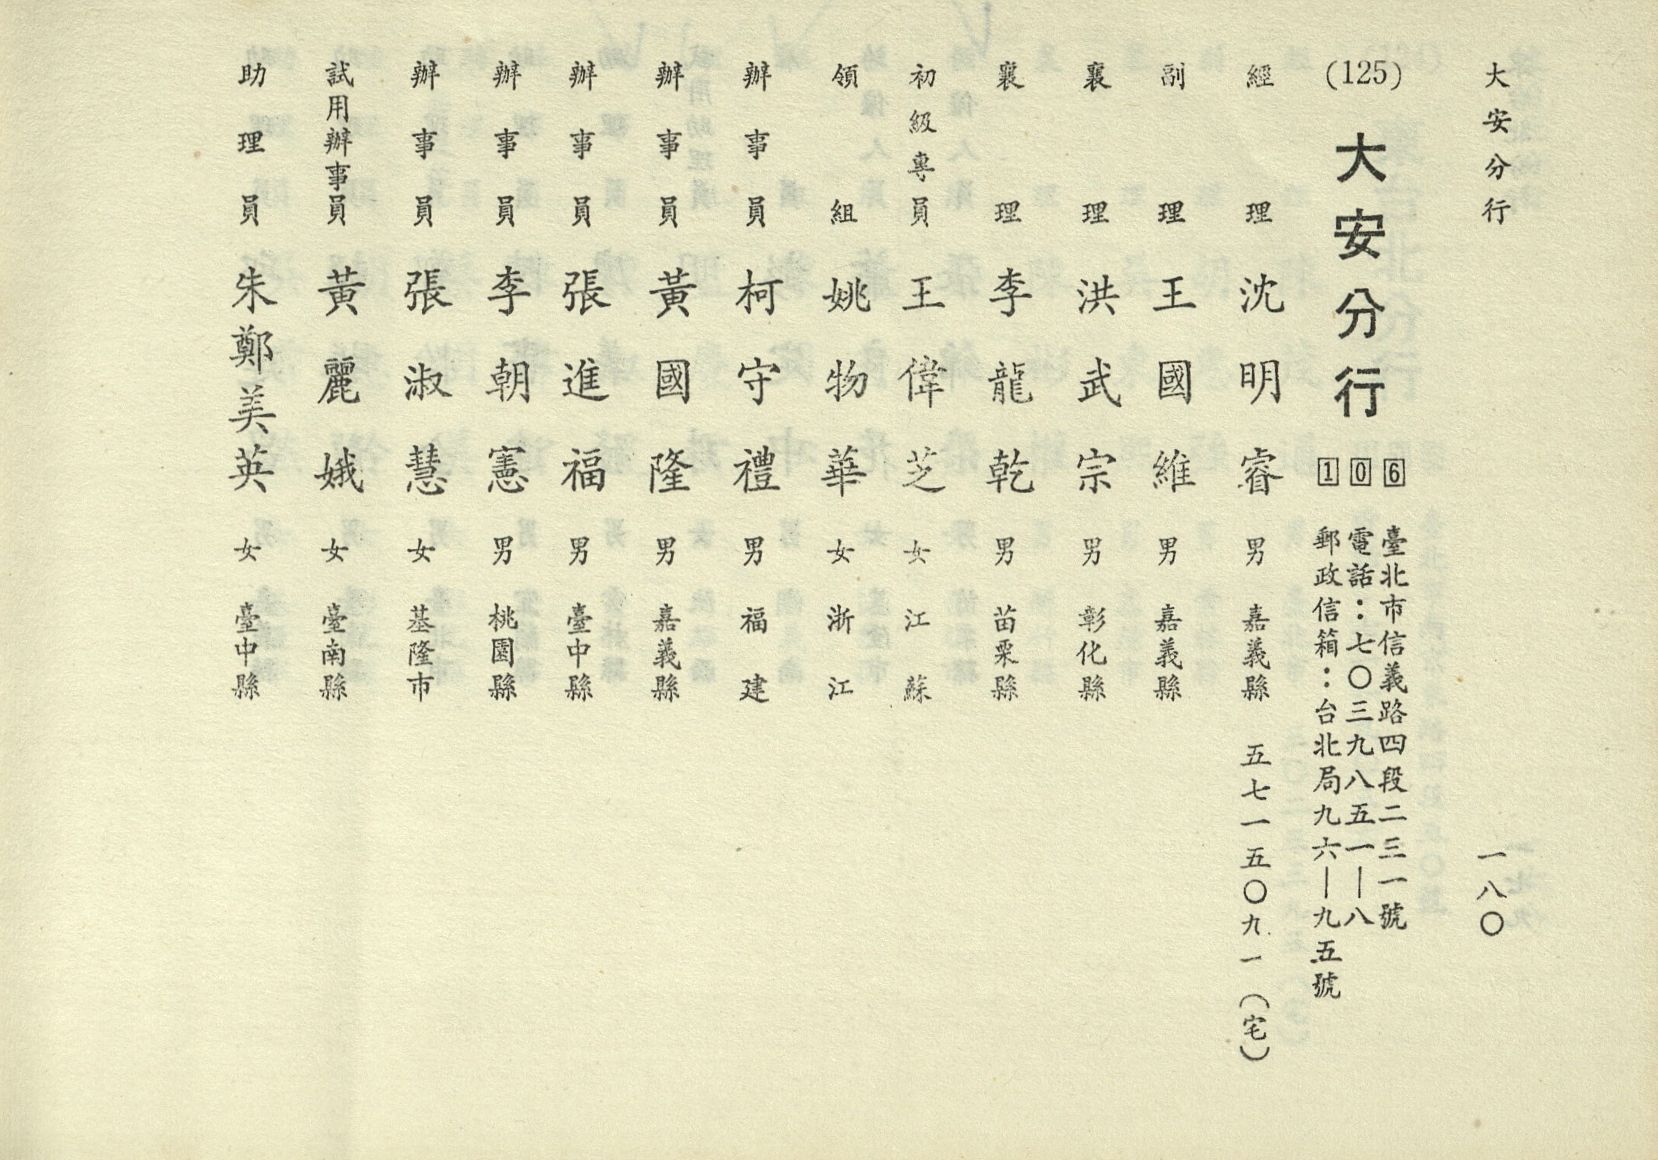 大安分行　一八〇
(125) 大安分行
106 臺北市信義路四段二三一號
電話：七〇三九八五一—八
郵政信箱：台北局九六—九五號
經理 沈明睿 男 嘉義縣 五七一五〇九一（宅）
副理 王國維 男 嘉義縣
襄理 洪武宗 男 彰化縣
襄理 李龍乾 男 苗栗縣
初級專員 王偉芝 女 江蘇
領組 姚物華 女 浙江
辦事員 柯守禮 男 福建
辦事員 黃國隆 男 嘉義縣
辦事員 張進福 男 臺中縣
辦事員 李朝憲 男 桃園縣
辦事員 張淑慧 女 基隆市
試用辦事員 黃麗娥 女 臺南縣
助理員 朱鄭美英 女 臺中縣